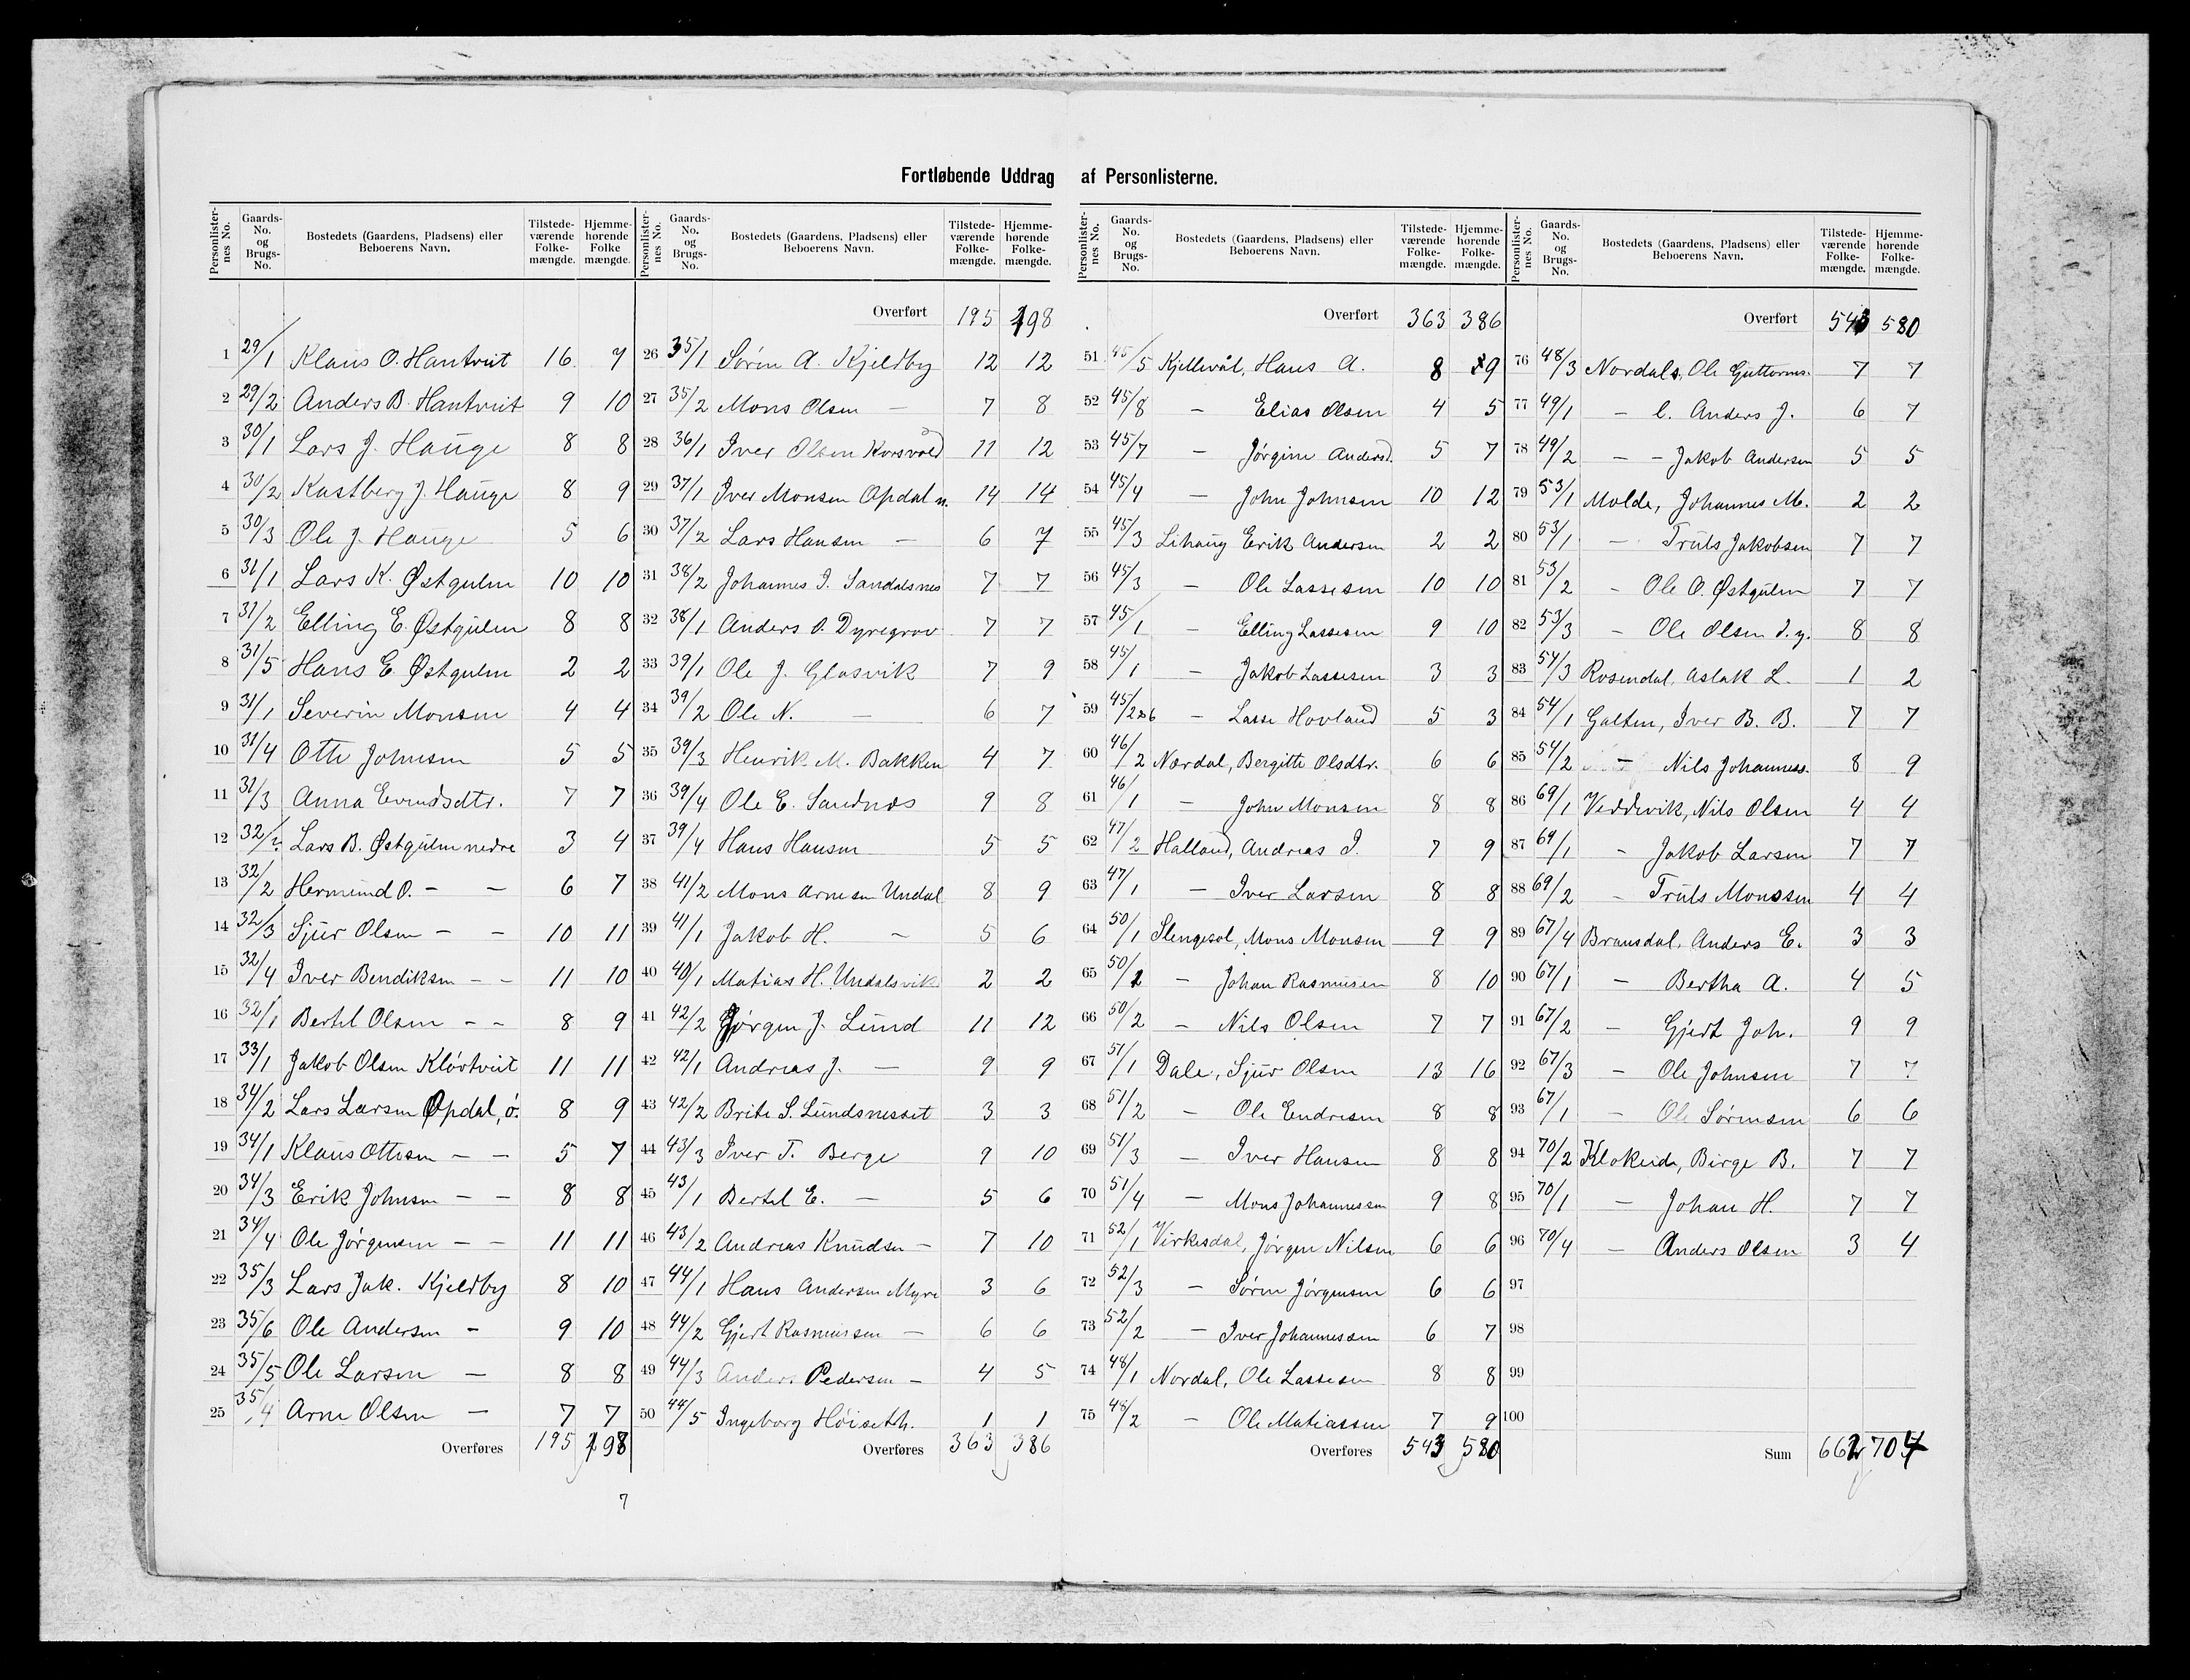 Fortløbende Uddrag af Personlisterne.
Personlisternes No. Gaards-No. og Brugs-No. Bostedets (Gaardens, Pladsens) eller Beboerens Navn. Tilstedeværende Folkemængde. Hjemmehørende Folkemængde.
1 29/1 Klaus O. Hantveit 16 7
2 29/2 Anders B. Hantveit 9 10
3 30/1 Lars J. Hauge 8 8
4 30/2 Kastberg J. Hauge 8 9
5 30/3 Ole J. Hauge 5 6
6 31/1 Lars K. Østgulen 10 10
7 31/2 Elling E. Østgulen 8 8
8 31/5 Hans E. Østgulen 2 2
9 31/1 Severin Monsen 4 4
10 31/4 Otte Johnsen 5 5
11 31/3 Anna Evindsdtr. 7 7
12 32/2 Lars B. Østgulen nedre 3 4
13 32/2 Hermund O. - - 6 7
14 32/3 Sjur Olsen - - 10 11
15 32/4 Iver Bendiksen - - 11 10
16 32/1 Bertel Olsen - - 8 9
17 33/1 Jakob Olsen Kløvtveit 11 11
18 34/2 Lars Larsen Opdal, ø. 8 9
19 34/1 Klaus Ottesen - - 5 7
20 34/3 Erik Johnsen - - 8 8
21 34/4 Ole Jørgensen - - 11 11
22 35/3 Lars Jak. Kjeldby 8 10
23 35/6 Ole Andersen - 9 10
24 35/5 Ole Larsen - 8 8
25 35/4 Arne Olsen - 7 7
Overføres 195 198
7
Personlisternes No. Gaards-No. og Brugs-No. Bostedets (Gaardens, Pladsens) eller Beboerens Navn. Tilstedeværende Folkemængde. Hjemmehørende Folkemængde.
Overført 195 198
26 35/1 Søren A. Kjeldby 12 12
27 35/2 Mons Olsen - 7 8
28 36/1 Iver Olsen Korsvold 11 12
29 37/1 Iver Monsen Opdal n. 14 14
30 37/2 Lars Hansen - 6 7
31 38/2 Johannes I. Sandalsnes 7 7
32 38/1 Anders O. Dyregrov 7 7
33 39/1 Ole J. Glosvik 7 9
34 39/2 Ole N. - 6 7
35 39/3 Henrik M. Bakken 4 7
36 39/4 Ole E. Sandnes 9 8
37 39/4 Hans Hansen 5 5
38 41/2 Mons Arnesen Undal 8 9
39 41/1 Jakob H. - 5 6
40 40/1 Matias H. Undalsvik 2 2
41 42/2 Jørgen J. Lund 11 12
42 42/1 Andreas J. - 9 9
43 42/2 Brite S. Lundsnesset 3 3
44 43/3 Iver T. Berge 9 10
45 43/1 Bertel E. - 5 6
46 43/2 Andreas Knudsen - 7 10
47 44/1 Hans Andersen Myre 3 6
48 44/2 Gjert Rasmussen - 6 6
49 44/3 Anders Pedersen - 4 5
50 44/5 Ingeborg Høiseth. 1 1
Overføres 363 386
Personlisternes No. Gaards-No. og Brugs-No. Bostedets (Gaardens, Pladsens) eller Beboerens Navn. Tilstedeværende Folkemængde. Hjemmehørende Folkemængde.
Overført 363 386
51 45/5 Kjellevål, Hans A. 8 9
52 45/8 - Elias Olsen 4 5
53 45/7 - Jørgine Andersd. 5 7
54 45/4 - John Johnsen 10 12
55 45/3 Lihaug Erik Andersen 2 2
56 45/3 - Ole Lassesen 10 10
57 45/1 - Elling Lassesen 9 10
58 45/1 - Jakob Lassesen 3 3
59 45/2&6 - Lasse Hovland 5 3
60 46/2 Nordal, Bergitte Olsdtr. 6 6
61 46/1 - John Monsen 8 8
62 47/2 Halland, Andreas I. 7 9
63 47/1 - Iver Larsen 8 8
64 50/1 Slengesol, Mons Monsen 9 9
65 50/1 - Johan Rasmusen 8 10
66 50/2 - Nils Olsen 7 7
67 51/1 Dale, Sjur Olsen 13 16
68 51/2 - Ole Endresen 8 8
69 51/3 - Iver Hansen 8 8
70 51/4 - Mons Johannessen 9 8
71 52/1 Virkesdal, Jørgen Nilsen 6 6
72 52/3 - Søren Jørgensen 6 6
73 52/2 - Iver Johannessen 6 7
74 48/1 Nordal, Ole Lassesen 8 8
75 48/2 - Ole Matiassen 7 9
Overføres 543 580
Personlisternes No. Gaards-No. og Brugs-No. Bostedets (Gaardens, Pladsens) eller Beboerens Navn. Tilstedeværende Folkemængde. Hjemmehørende Folkemængde.
Overført 543 580
76 48/3 Nordals, Ole Guttorms. 7 7
77 49/1 - l. Anders J. 6 7
78 49/2 - - Jakob Andersen 5 5
79 53/1 Molde, Johannes M. 2 2
80 53/1 - Truls Jakobsen 7 7
81 53/2 - Ole O. Østgulen 7 7
82 53/3 - Ole Olsen d.y. 8 8
83 54/3 Rosendal, Aslak L. 1 2
84 54/1 Galten, Iver B. B. 7 7
85 54/2 - Nils Johanness. 8 9
86 69/1 Veddevik, Nils Olsen 4 4
87 69/1 - Jakob Larsen 7 7
88 69/2 - Truls Monssen 4 4
89 67/4 Bransdal, Anders E. 3 3
90 67/1 - Bertha A. 4 5
91 67/2 - Gjert Joh. 9 9
92 67/3 - Ole Johnsen 7 7
93 67/1 - Ole Sørensen 6 6
94 70/2 Klokeide, Birge B. 7 7
95 70/1 - Johan H. 7 7
96 70/4 - Anders Olsen 3 4
97
98
99
100
Sum 662 704